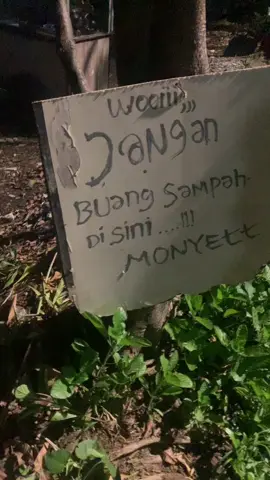 woiii,,,
Jangan
BUang Sampah
Di Sini ....!!!
MONYETT